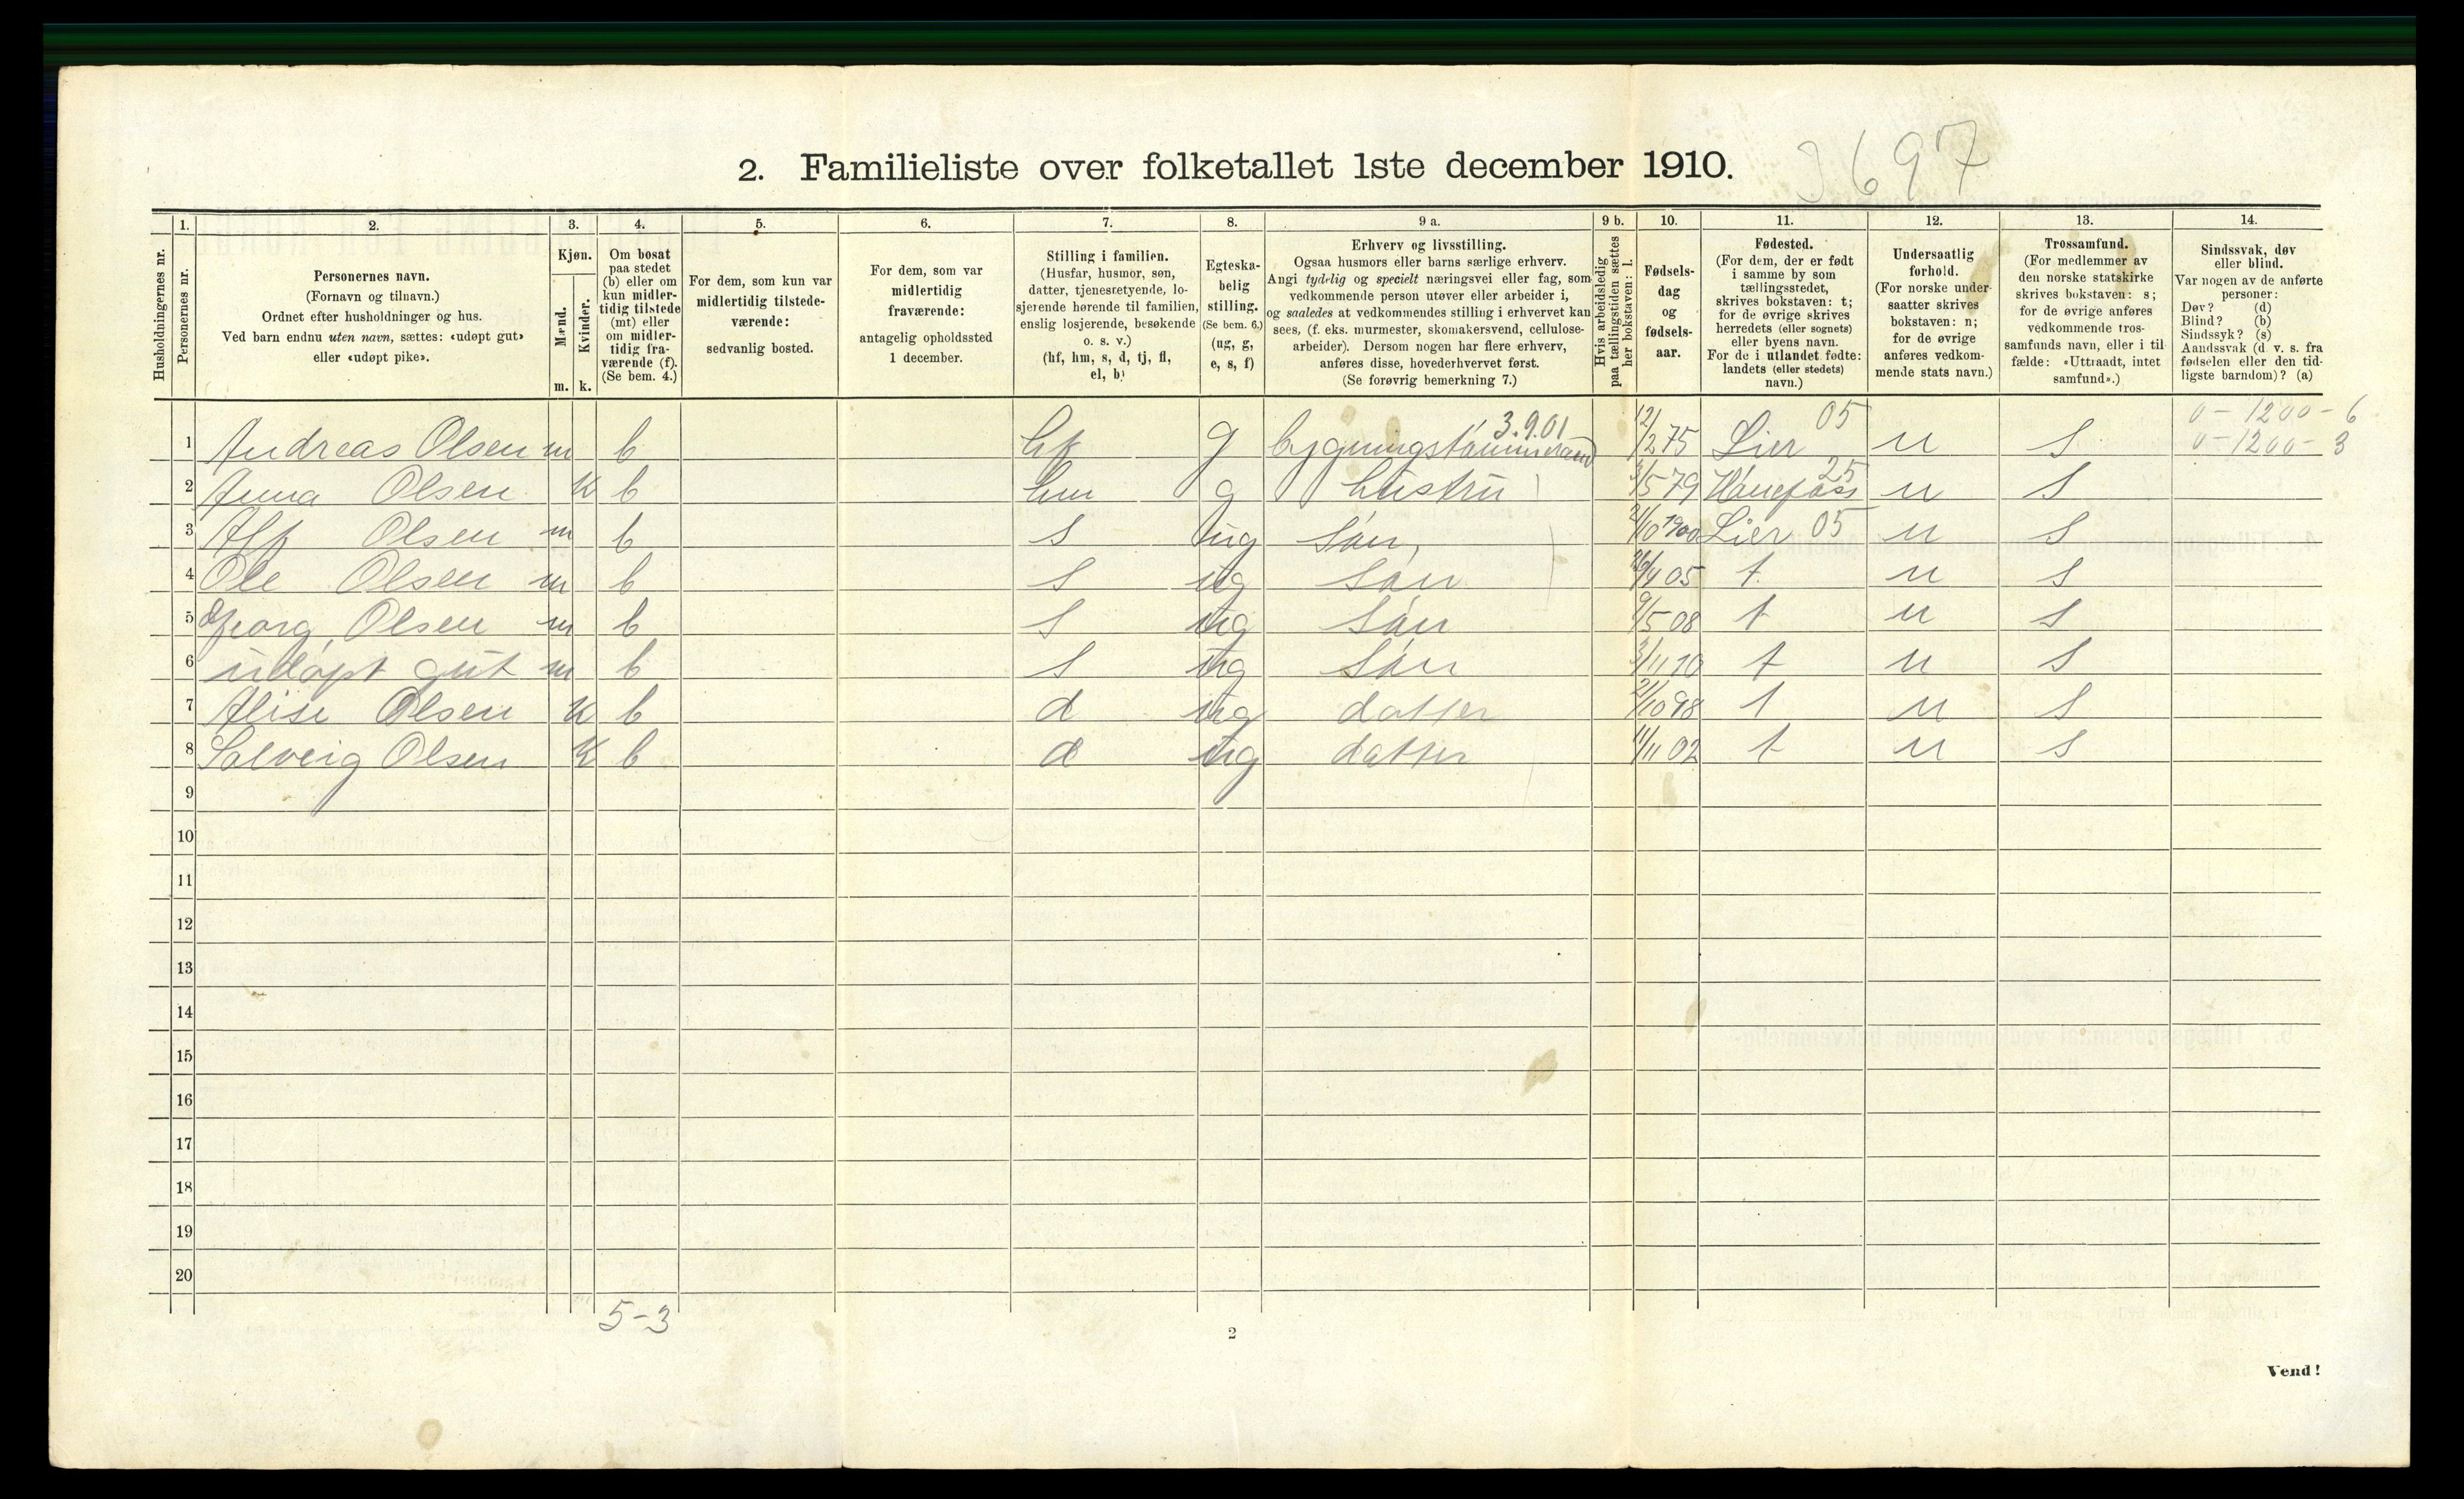 3697
2. Familieliste over folketallet 1ste december 1910.
Husholdningernes nr.
1. Personernes nr.
2. Personernes navn.
(Fornavn og tilnavn.)
Ordnet efter husholdninger og hus.
Ved barn endnu uten navn, sættes: «udøpt gut»
eller «udøpt pike».
3. Kjøn.
Mænd. m.
Kvinder. k.
4. Om bosat
paa stedet
(b) eller om
kun midler-
tidig tilstede
(mt) eller
om midler-
tidig fra-
værende (f).
(Se bem. 4.)
5. For dem, som kun var
midlertidig tilstede-
værende:
sedvanlig bosted.
6. For dem, som var
midlertidig
fraværende:
antagelig opholdssted
1 december.
7. Stilling i familien.
(Husfar, husmor, søn,
datter, tjenestetyende, lo-
sjerende hørende til familien,
enslig losjerende, besøkende
o. s. v.)
(hf, hm, s, d, tj, fl,
el, b)
8. Egteska-
belig
stilling.
(Se bem. 6.)
(ug, g,
e, s, f)
9 a. Erhverv og livsstilling.
Ogsaa husmors eller barns særlige erhverv.
Angi tydelig og specielt næringsvei eller fag, som
vedkommende person utøver eller arbeider i,
og saaledes at vedkommendes stilling i erhvervet kan
sees, (f. eks. murmester, skomakersvend, cellulose-
arbeider). Dersom nogen har flere erhverv,
anføres disse, hovederhvervet først.
(Se forøvrig bemerkning 7.)
9 b. Hvis arbeidsledig
paa tællingstiden sættes
her bokstaven: l.
10. Fødsels-
dag
og
fødsels-
aar.
11. Fødested.
(For dem, der er født
i samme by som
tællingsstedet,
skrives bokstaven: t;
for de øvrige skrives
herredets (eller sognets)
eller byens navn.
For de i utlandet fødte:
landets (eller stedets)
navn.)
12. Undersaatlig
forhold.
(For norske under-
saatter skrives
bokstaven: n;
for de øvrige
anføres vedkom-
mende stats navn.)
13. Trossamfund.
(For medlemmer av
den norske statskirke
skrives bokstaven: s;
for de øvrige anføres
vedkommende tros-
samfunds navn, eller i til-
fælde: «Uttraadt, intet
samfund».)
14. Sindssvak, døv
eller blind.
Var nogen av de anførte
personer:
Døv? (d)
Blind? (b)
Sindssyk? (s)
Aandssvak (d. v. s. fra
fødselen eller den tid-
ligste barndom)? (a)
3.9.01 05 0-1200-6
1 Andreas Olsen m b hf g bygningstømmermand 12/2 75 Lier n s 0-1200-3
2 Anna Olsen k b hm g hustru 3/5 79 Hønefoss 25 n s
3 Alf Olsen m b s ug søn, 21/10 1900 Lier 05 n s
4 Ole Olsen m b s ug søn 26/4 05 t. n s
5 Georg Olsen m b s ug søn 9/5 08 t n s
6 udøpt gut m b s ug søn 3/11 10 t n s
7 Alise Olsen k b d ug datter 21/10 98 t n s
8 Solveig Olsen k b d ug datter 11/11 02 t n s
9
10
11
12
13
14
15
16
17
18
19
20
5-3
2
Vend!